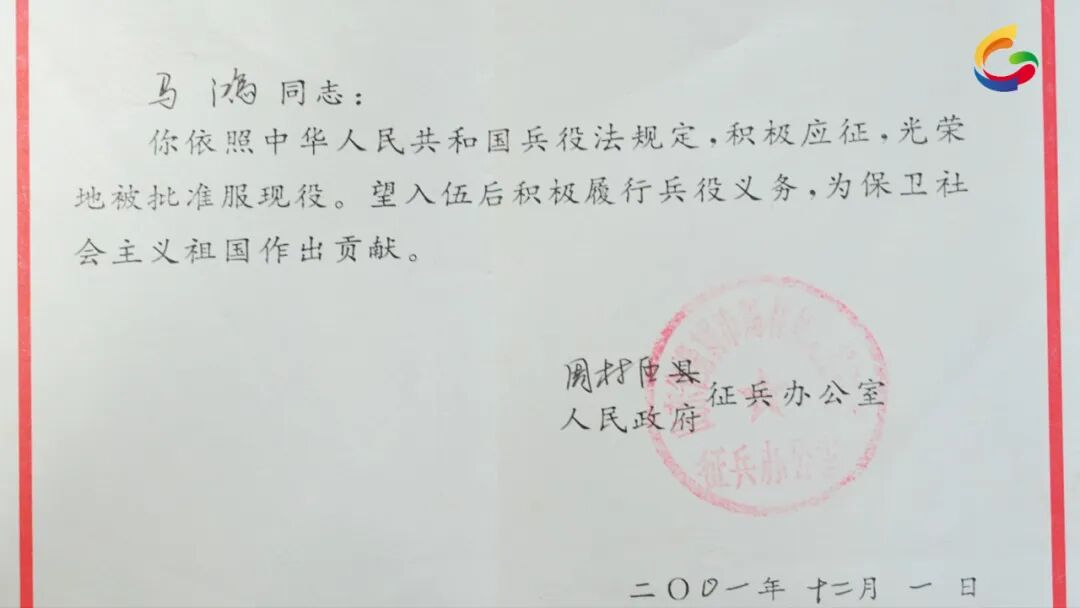 马鸿同志：
你依照中华人民共和国兵役法规定，积极应征，光荣
地被批准服现役。望入伍后积极履行兵役义务，为保卫社
会主义祖国作出贡献。
周村区县
人民政府 征兵办公室
征兵办公室
二〇〇一年 十二月 一 日